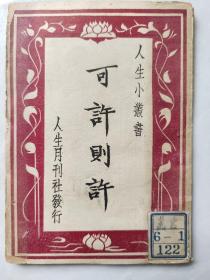 人生小叢書
可許則許
人生月刊社發行
6-1
122